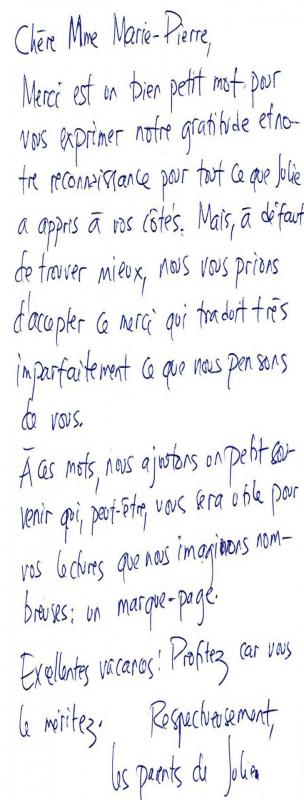 Chère Mme Marie-Pierre,
Merci est un bien petit mot pour
vous exprimer notre gratitude et no-
tre reconnaissance pour tout ce que Julie
a appris à vos côtés. Mais, à défaut
de trouver mieux, nous vous prions
d'accepter ce merci qui traduit très
imparfaitement ce que nous pensons
de vous.
À ces mots, nous ajoutons un petit sou-
venir qui, peut-être, vous sera utile pour
vos lectures que nous imaginons nom-
breuses: un marque-page.
Excellentes vacances! Profitez car vous
le méritez. Respectueusement,
les parents de Julien